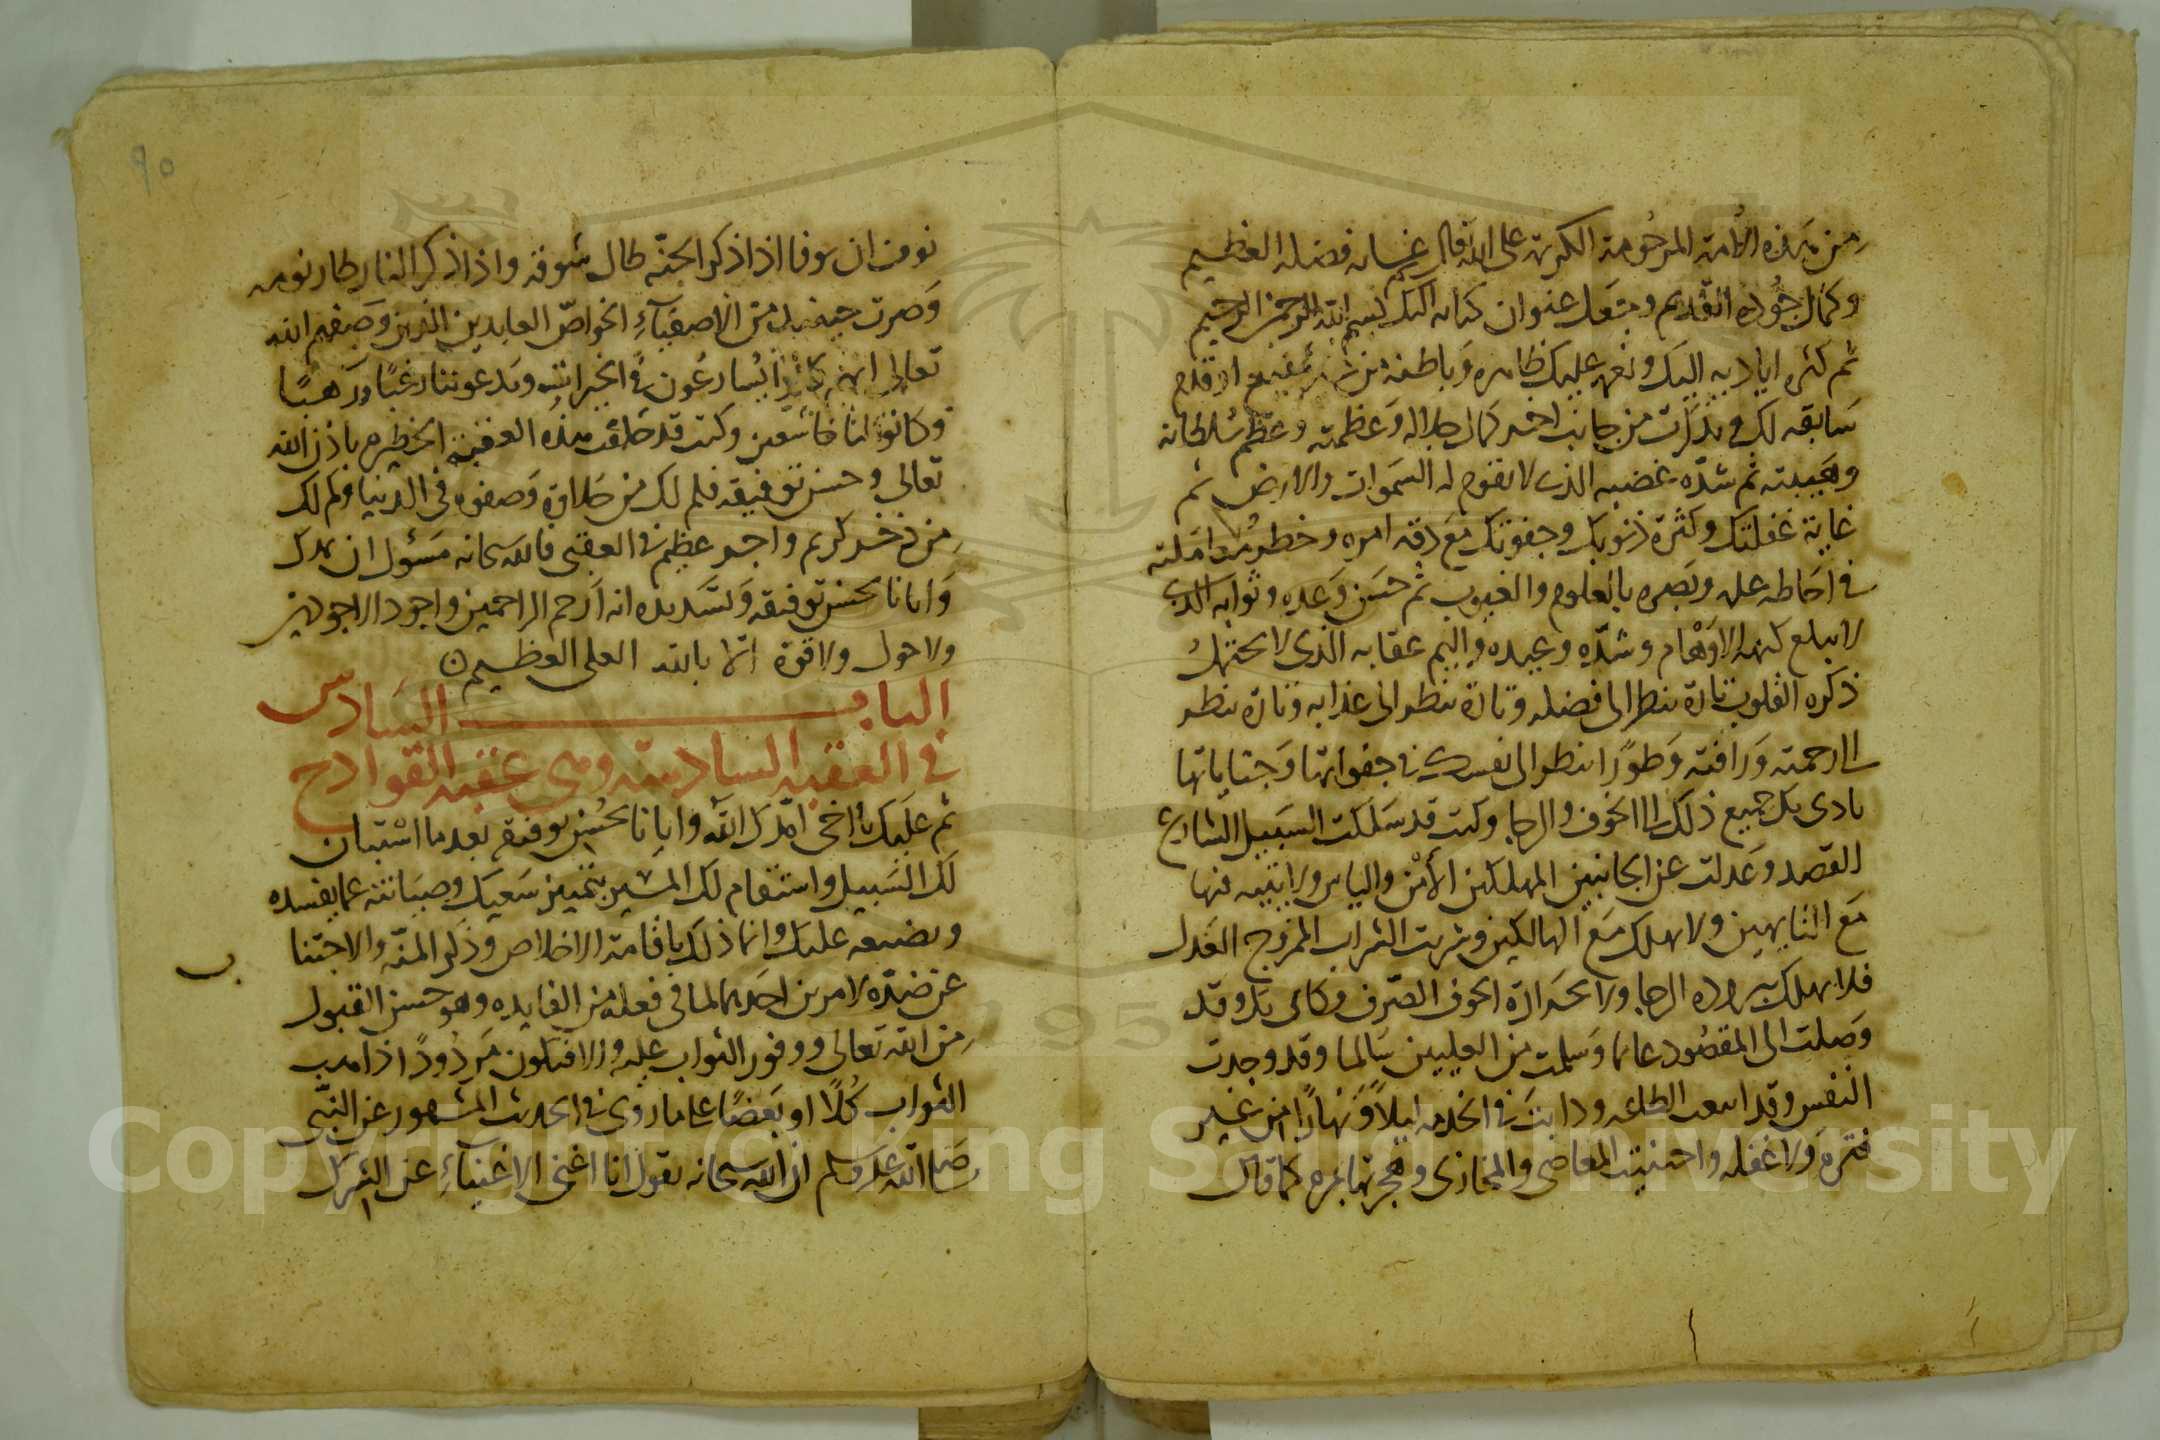 من هذه الأمة المرحومة الكريمة على الله قال غسانه فضله العظيم
وكمال جوده القديم وجعل عنوان كتابه اليك بسم الله الرحمن الرحيم
ثم كثره اياديه اليك ونعمه عليك ظاهره وباطنه من غير شفيع او قدم
سابقه لك وتذكرت من جانب اخر كمال جلاله وعظمته وعظم سلطانه
وهيبته ثم شده غضبه الذى لا تقوم له السموات والارض ثم
غاية غفلتك وكثرة ذنوبك وجفوتك مع دقه امره وخطر معاملته
في احاطه علمه وبصره بالعلوم والغيوب ثم حسن وعده وثوابه الذى
لا يبلغ كنهه الاوهام وشده وعيده واليم عقابه الذى لا يحتمل
ذكره القلوب تارة تنظر الى فضله وتارة تنظر الى عذابه وتارة تنظر
الى رحمته ورافته وطورًا تنظر الى نفسك في جفواتها وجناياتها
تادى بك جميع ذلك الى الخوف والرجا وكنت قد سلكت السبيل الشارع
القصد وعدلت عن الجانبين المهلكين الأمن والياس ولا تتيه فيها
مع التايهين ولا تهلك مع الهالكين وشربت الشراب الممزوج العدل
فلا تهلك ببروده الرجا ولا بحرارة الخوف الصرف وكانى بك وقد
وصلت الى المقصود غانما وسلمت من العليين سالما وقد وجدت
النفس وقد انبعثت للطاعه ودابت في الخدمه ليلاً ونهارًا من غير
فترة ولا غفله واجتنبت المعاصى والمخازى وهجرتها بمره كما قال
٩٥
نوف ان نوفا اذا ذكر الجنّه طال شوقه واذا ذكر النار طار نومه
وصرت حينئذ من الاصفيآءِ الخواصّ العابدين الذين وصفهم الله
تعالى انهم كانوا يسارعون في الخيرات ويدعوننا رغبًا ورهبًا
وكانوا لنا خاشعين وكنت قد خلفت هذه العقبة الخطيره باذن الله
تعالى وحسن توفيقه فلم لك من حلاوة وصفوه في الدنيا وكم لك
من ذخر كريم واجر عظيم في العقبى فالله سبحانه مسؤل ان يمدك
وايانا بحسن توفيقه وتسديده انه ارحم الراحمين واجود الاجودين
ولا حول ولا قوة الّا بالله العلى العظيم
الباب السادس
في العقبه السادسه وهى عقبه القوادح
ثم عليك يا اخى امدك الله وايانا بحسن توفيقه بعد ما استبان
لك السبيل واستقام لك المسير بتمييز سعيك وصيانته عما يفسده
ويضيعه عليك وانما ذلك باقامة الاخلاص وذكر المنّه والاجتنا
ب
عن ضدّه لامرين احدهما لما في فعله من الفايده وهو حسن القبول
من الله تعالى ووفور الثواب عليه والا فيكون مردودًا اذا هب
الثواب كلًا او بعضًا على ما روى في الحديث المشهور عن النبّى
صلى الله عليه وسلم ان الله سبحانه يقول انا اغنى الاغنياءِ عن الشرك
Copyright © King Saud University